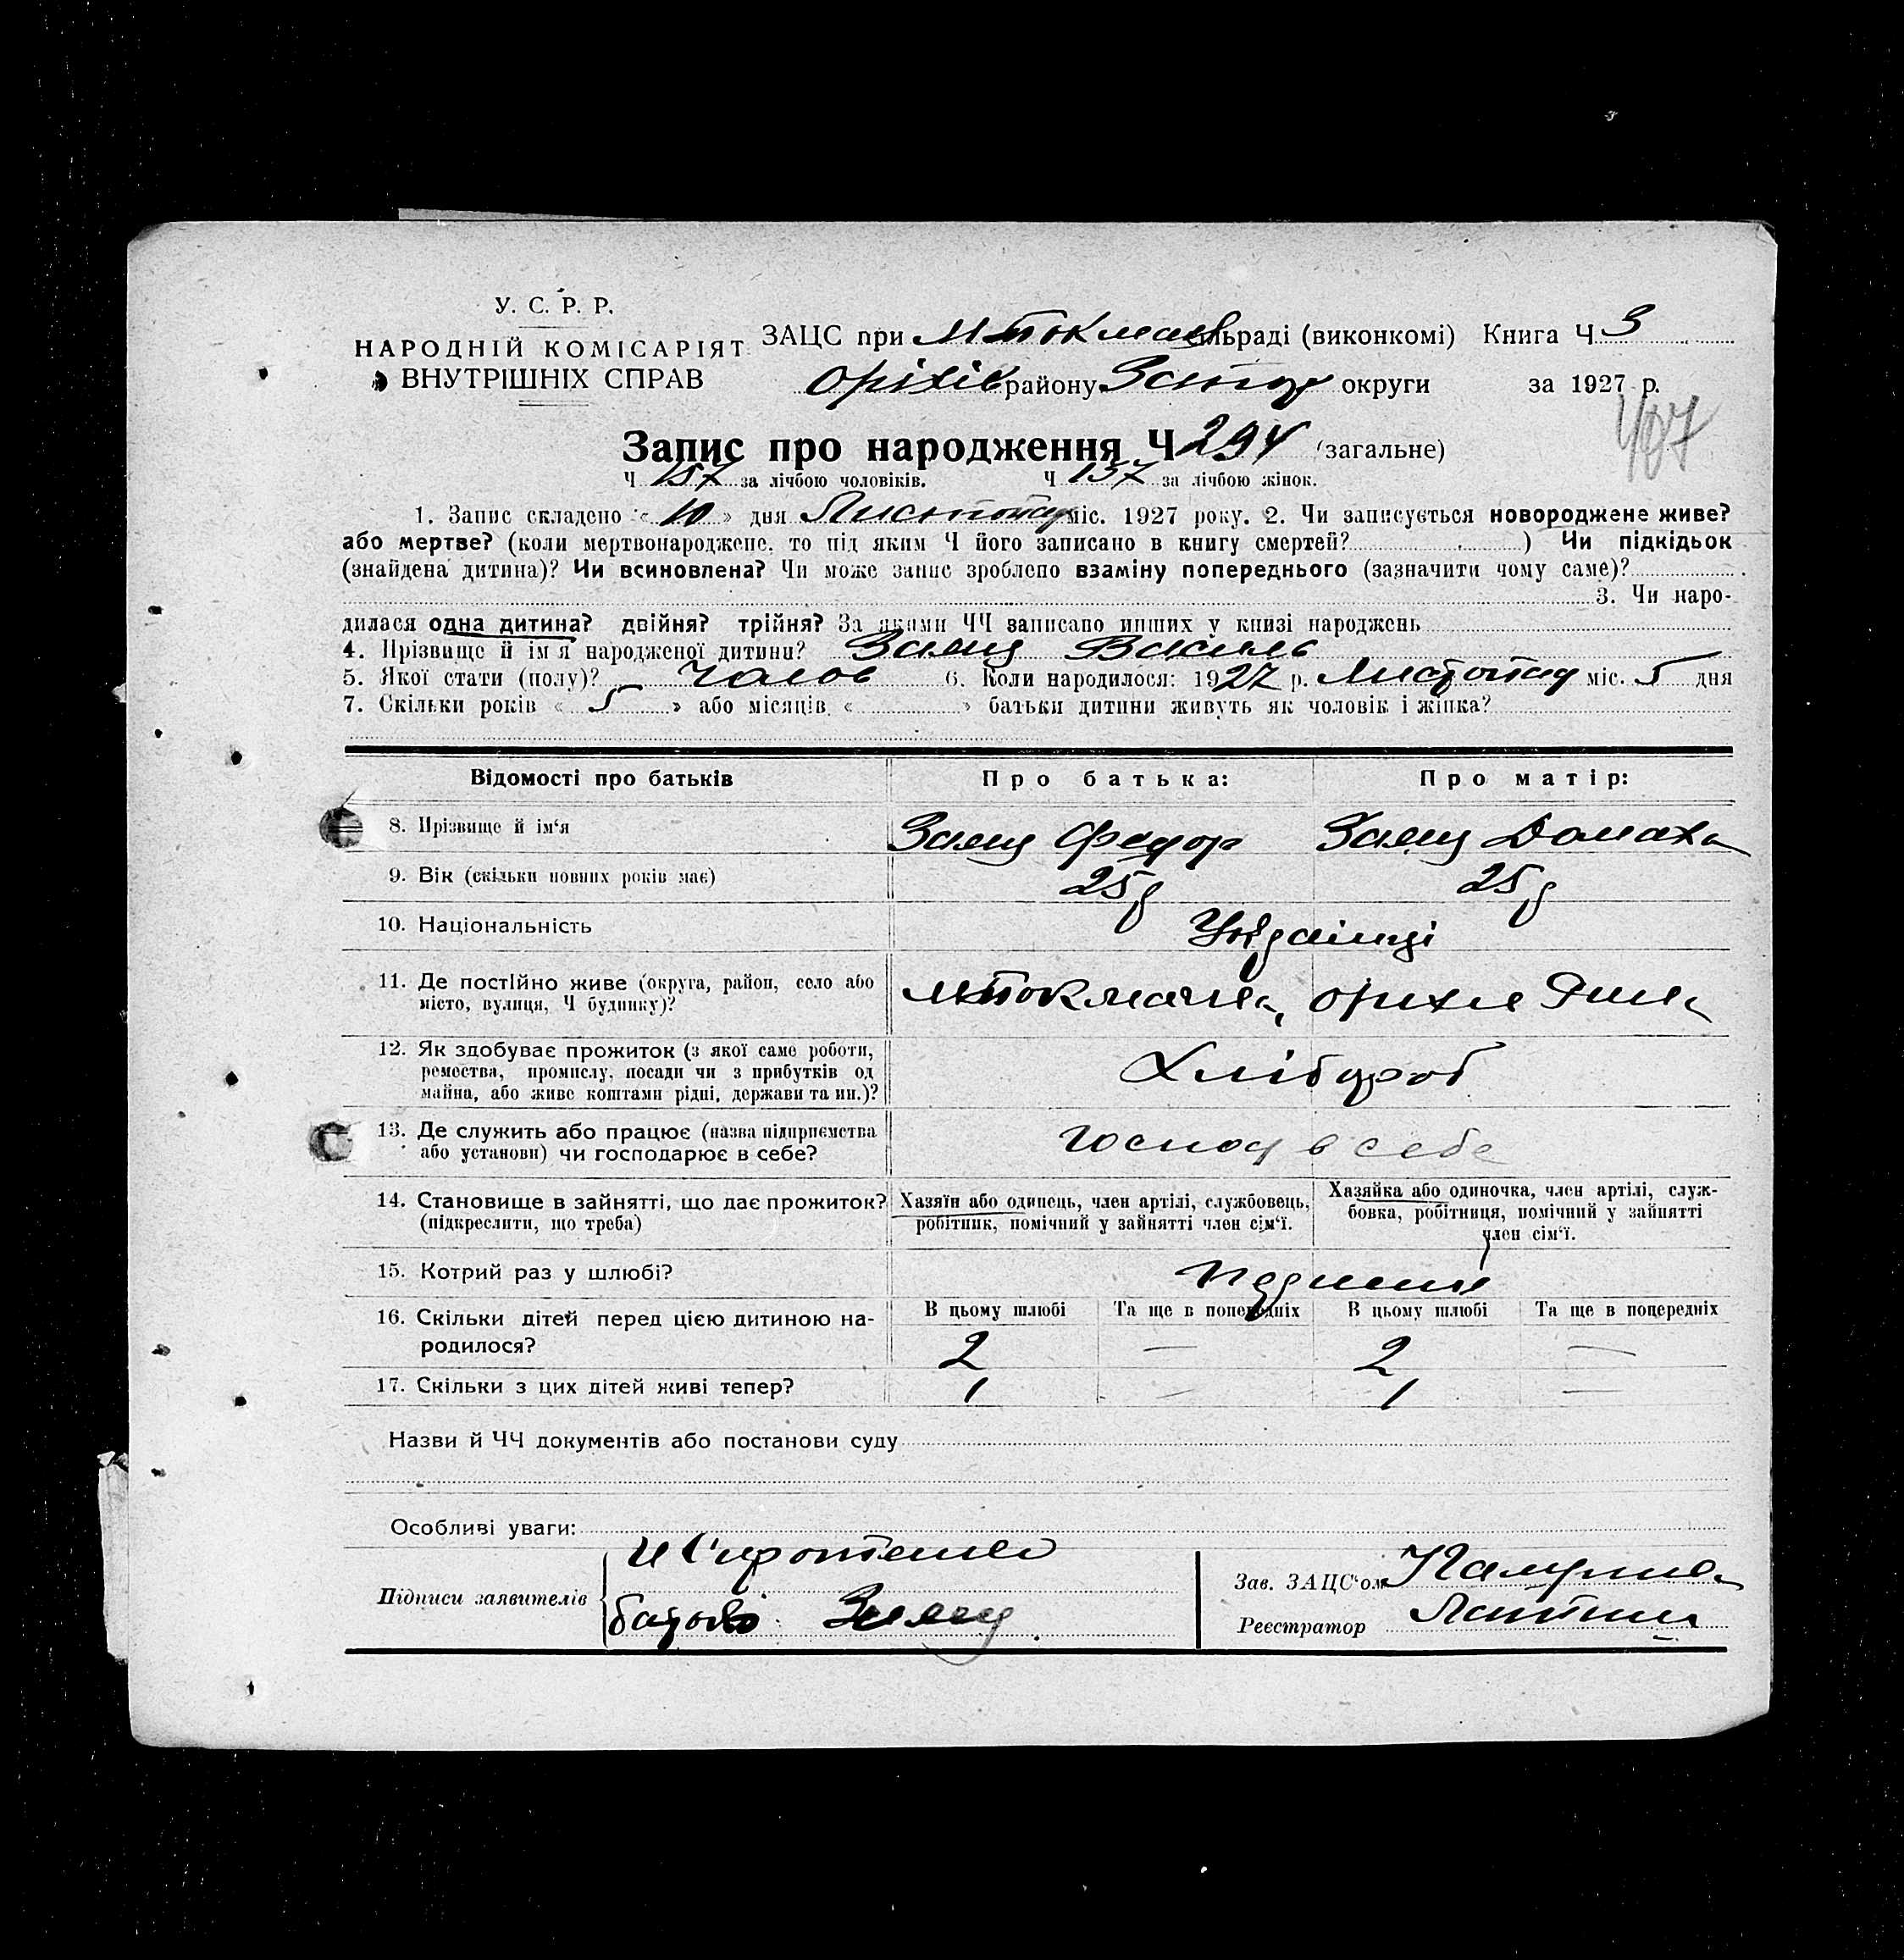 У. С. Р. Р.
НАРОДНІЙ КОМІСАРІЯТ
ВНУТРІШНІХ СПРАВ
ЗАЦС при МТокмач сільраді (виконкомі) Книга Ч 3
Оріхів району Запор округи за 1927 р.
407
Запис про народження Ч 294 (загальне)
Ч 157 за лічбою чоловіків. Ч 137 за лічбою жінок.
1. Запис складено «10» дня Листопад міс. 1927 року. 2. Чи записується новороджене живе?
або мертве? (коли мертвонароджене, то під яким Ч його записано в книгу смертей? ) Чи підкідьок
(знайдена дитина)? Чи всиновлена? Чи може запис зроблено взаміну попереднього (зазначити чому саме)?
3. Чи наро-
дилася одна дитина? двійня? трійня? За якими ЧЧ записано инших у книзі народжень
4. Прізвище й ім'я народженої дитини? Заяць Василь
5. Якої стати (полу)? Чолов 6. Коли народилося: 1927 р. Листопад міс. 5 дня
7. Скільки років «5» або місяців « » батьки дитини живуть як чоловік і жінка?
Відомості про батьків Про батька: Про матір:
8. Прізвище й ім'я Заяць Федор Заяць Домаха
9. Вік (скільки повних років має) 25 р 25 р
10. Національність Українці
11. Де постійно живе (округа, район, село або
місто, вулиця, Ч будинку)? МТокмачка, Оріхів
12. Як здобуває прожиток (з якої саме роботи,
ремества, промислу, посади чи з прибутків од
майна, або живе коштами рідні, держави та ин.)? Хлібороб
13. Де служить або працює (назва підприємства
або установи) чи господарює в себе? Господ в себе
14. Становище в зайнятті, що дає прожиток?
(підкреслити, що треба)
Хазяїн або одинець, член артілі, службовець,
робітник, помічний у зайнятті член сім'ї.
Хазяйка або одиночка, член артілі, служ-
бовка, робітниця, помічний у зайнятті
член сім'ї.
15. Котрий раз у шлюбі?
16. Скільки дітей перед цією дитиною на-
родилося?
В цьому шлюбі Та ще в попередніх В цьому шлюбі Та ще в попередніх
2 — 2 —
17. Скільки з цих дітей живі тепер? 1 — 1 —
Назви й ЧЧ документів або постанови суду
Особливі уваги:
Підписи заявителів
Зав. ЗАЦС'ом
Реєстратор